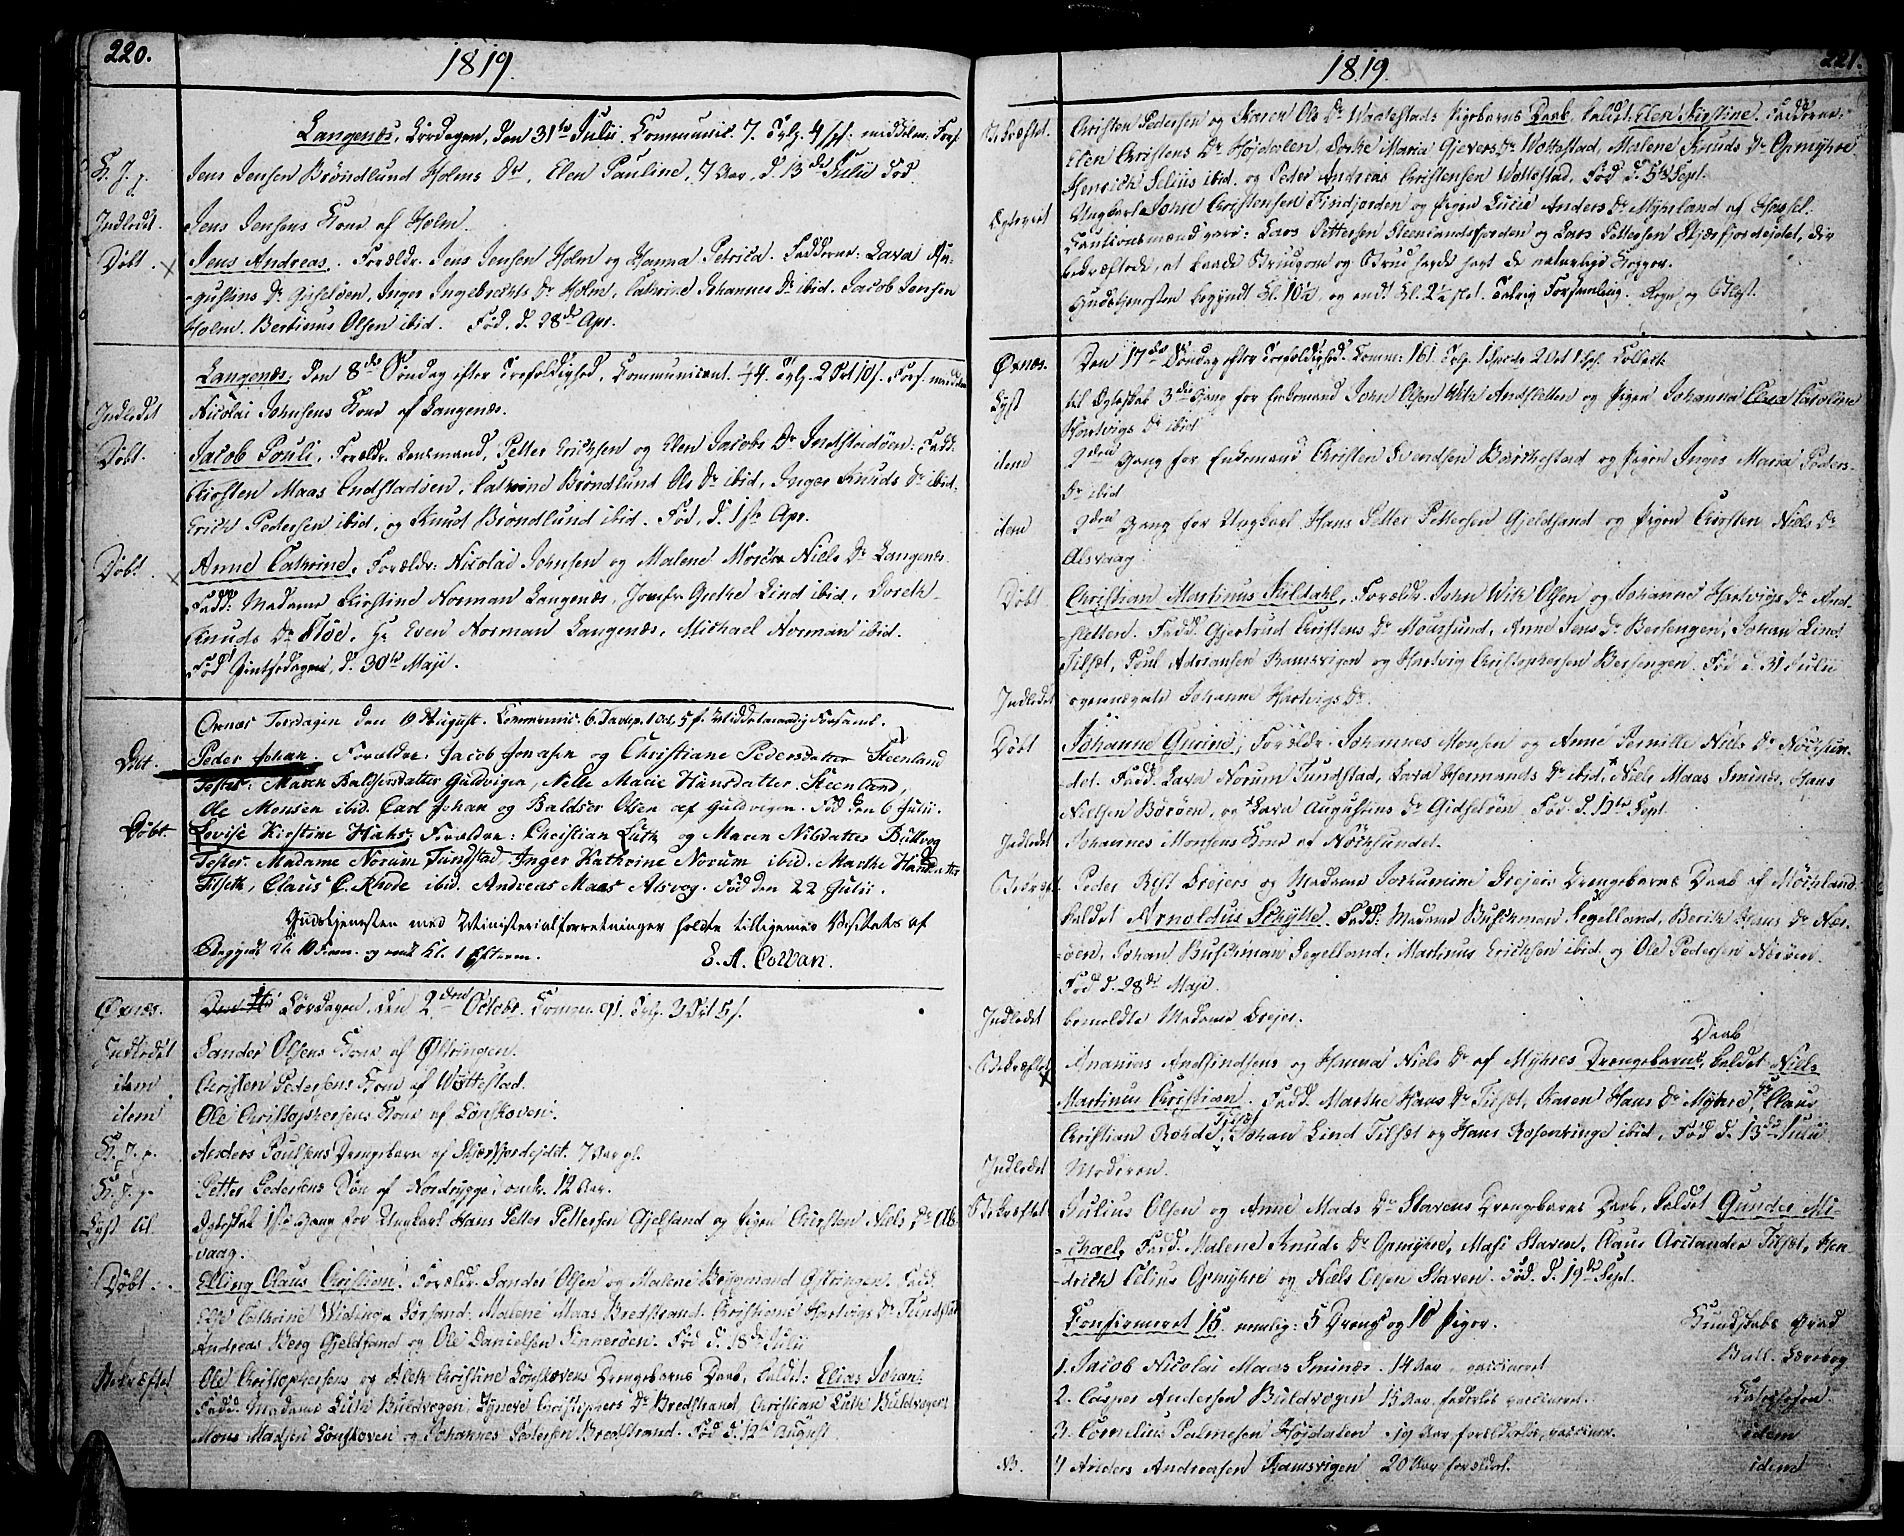 220.
1819.
Langenæs, Lørdagen, den 31te Julii. Communic. 7. Tvlg. 4 sk. middelm. Fors.
K. J. p. Jens Jensen Brøndlund Holms Dr, Elen Pauline, 7 Uger, d. 13de Julii Fød.
Indledet. Jens Jensens Kone af Holm.
Døbt. Jens Andreas. Forældr. Jens Jensen Holm og Hanna Petrica. Fadderne: Lava Au-
gustins Dr Gisløen, Inger Ingebrichts Dr Holm, Cathrine Johannes Dr ibid. Jacob Jensen
Holm. Bertinus Olsen ibid. Fød, d. 28de Apr.
Langenæs, den 8de Søndag efter Trefoldighed, Communicant. 44. Tvlg. 2 Ort 10 s. Fors.
Indledet Nicolai Johnsens Kone af Langenæs.
Døbt. Jacob Pouli, Forældr. Lensmand, Petter Erichsen og Elen Jacobs Dr Indstadøen: Fadd:
Kirsten Maas Indstadøen, Cathrine Brøndlund Ols Dr ibid, Inger Knuds Dr ibid,
Erich Pedersen ibid, og Knud Brøndlund ibid. Fød, d. 1ste Apr.
Døbt. Anne Cathrine, Forældr: Nicolai Johnsen og Malene Norum Niels Dr Langenæs
Fadd: Madame Kirstine Norman Langenæs, Jomfr Grethe Lind ibid, Doreth-
Knuds Dr Støe, Hr Even Norman Langenæs, Michael Norman ibid.
Fød Pintsedagen, d. 30te Maji.
Øxnæs Torsdagen den 19 August. Communic. 6. Tavlep. 1 Ort 5 s. Middelmaadig Forsaml.
Døbt. Peder Johan Foreldre. Jacob Jonasen og Christiane Pedersdatter Steenland
Testes: Maren Baltzersdatter Guldvigen, Nille Marie Hansdatter Steenland,
Ole Monsen ibid. Carl Johan og Baldser Olsen af Guldvigen. Fød den 6 Julii.
Døbt. Lovise Kirstine Hahs, Foreldre: Christian Lutk og Maren Nilsdatter Bulvog
Testes. Madame Norum Tundstad, Inger Kathrine Norum ibid. Marthe Hansdatter
Tilseth, Claus C. Rhode ibid. Andreas Maas Alsvog. Fød den 22 Julii.
Gudstjenesten med Ministerialforretninger holdte tilligemed Visitats af
Begyndt Kl. 10 Form. og endt Kl. 1 Efterm. E. A. Colban.
Øxnæs. Lørdagen, den 2den Octobr. Commun. 91. Tvlg. 3 Ort 5 s.
Indledet Sander Olsens Kone af Gistringen.
item Christen Pedersens Kone af Wottestad.
item Ole Christophersens Kone af Lønskoven.
K. J. p. Anders Poulsens Drengebarn af Skjærfjordejdet. 7 Uger gl.
K. J. p. Petter Pedersens Søn af Nordrygge, omtr. 12 Uger.
Lyst til Egteskab 1ste Gang for Ungkarl Hans Petter Pettersen Gjelsand og Pigen Kirsten Niels Dr Als-
vaag.
Døbt. Elling Claus Christian. Forældr. Sander Olsen og Malene Berggmand Gistringen. Fadd.
Else Cathrine Widing Sørsand. Malene Maas Bredstrand. Christiane Hartvigs Dr Tundstad
Andreas Berg Gjeldsand og Ole Danielsen Tinnerøen. Fød d. 18de Julii
Bekræftet Ole Christophersens og Aleth Christine Lønskovens Drengebarns Daab, kaldet: Elias Johan:
Fadd. Madame Lutk Buldvogen, Synneve Christophers Dr Bredstrand, Christian Lutk Buldvogen
Mons Madsen Lønskoven og Johannes Pedersen Bredstrand. Fød d. 12te August
1819.
221.
Bekræftet. Christen Pedersen og Karen Ols Dr Wottestads Pigebarns Daab, kaldet: Elen Kirstine. Fadderne:
Elen Christens Dr Højdalen, Dorthe Maria Gjevers Dr Wottestad, Malene Knuds Dr Opmyhre
Henrich Selius ibid. og Peder Andreas Christensen Wottestad, Fød d. 5te Sept.
Egteviet Ungkarl John Christensen Findfjorden og Pigen Lucie Anders Dr Myhrland af Hassel.
Cautionsmænd vare: Lars Pettersen Steenlandsfjorden og Lars Pettersen Skjærfjordejdet, der
bekræftede, at baade Brudgom og Brud havde havt de naturlige Kopper.
Gudstjenesten begyndt Kl. 10½, og endt Kl. 2½ Slet. Talrig Forsamling. Regn og Blæst.
Øxnæs. Den 17de Søndag efter Trefoldighed. Commun: 161. Tvlg. 1 Specie 2 Ort 1 s. Collecte
Lyst til Egteskab 3die Gang for Enkemand John Olsen With Andsletten og Pigen Johanna Caroline
Hartvigs Dr ibid
item 2den Gang for Enkemand Christen Svendsen Barkestad og Pigen Inger Maria Peders-
Dr ibid
item 2den Gang for Ungkarl Hans Petter Pettersen Gjeldsand og Pigen Kirsten Niels Dr
Alsvaag
Døbt. Christian Martinus Juldahl, Forældr. John With Olsen og Johanna Hartvigs Dr And-
sletten. Fadd. Gjertrud Christens Dr Moursund, Anne Jens Dr Bersengen, Johan Lind
Tilsæt, Poul Adriansen Ramsvigen og Hartvig Christophersen Bersengen. Fød d. 31 Julii
Indledet ovennævnte Johanne Hartvigs Dr
Døbt Johanna Gurine, Forældr. Johannes Monsen og Anne Pernille Niels Dr Norsun-
det. Fadd. Lava Norum Tundstad, Lava Hermands Dr ibid, Niels Maas Sminæs, Hans
Nielsen Børøen, og Lava Augustins Dr Gidsløen. Fød d. 12te Sept.
Indledet Johannes Monsens Kone af Norsundet.
Bekræft. Peder Rist Drejers og Madame Jochumine Drejers Drengebarns Daab af Morchland
kaldet Arnoldus Schytte. Fadd. Madame Buschman Segelland, Berith Hans Dr Nær-
øen, Johan Buschman Segelland, Martinus Erichsen ibid. og Ole Pedersen Nærøen.
Fød d. 28de Maji.
Indledet bemeldte Madame Drejer.
Bekræftet Ananias Andsindsens og Hanna Niels Dr af Myhres Drengebarns Daab, kaldet Niels
Martinus Christian. Fadd. Marthe Hans Dr Tilsæt, Karen Hans Dr Myhre, Hr Claus
Christian Rohde Tilsæt, Johan Lind Tilsæt og Hans Rosenvinge ibid. Fød d. 13de Julii
Indledet Moderen.
Bekræftet Julius Olsen og Anne Mads Dr Stavens Drengebarns Daab, kaldet Gunder Mi-
chael, Fadd. Malene Knuds Dr Opmyhre, Masi Staven, Claus Arctander Tilsæt, Hen-
drich Selius Opmyhre og Niels Olsen Staven. Fød. d. 19de Sept.
Confirmeret 15. nemlig: 5 Drenge og 10 Piger. Kundskabs Grad
1. Jacob Nicolai Maas Sminæs. 14 Aar, vaccineret Ball. Lærebog
2. Casper Andersen Buldvogen 15 Aar, faderløs vaccineret. Catechesen
3. Cornelius Palmesen Højdalen. 19 Aar, forældreløs, vaccineret. idem
NB. 4 Anders Andreasen Ramsvigen 20 Aar forældrel. idem